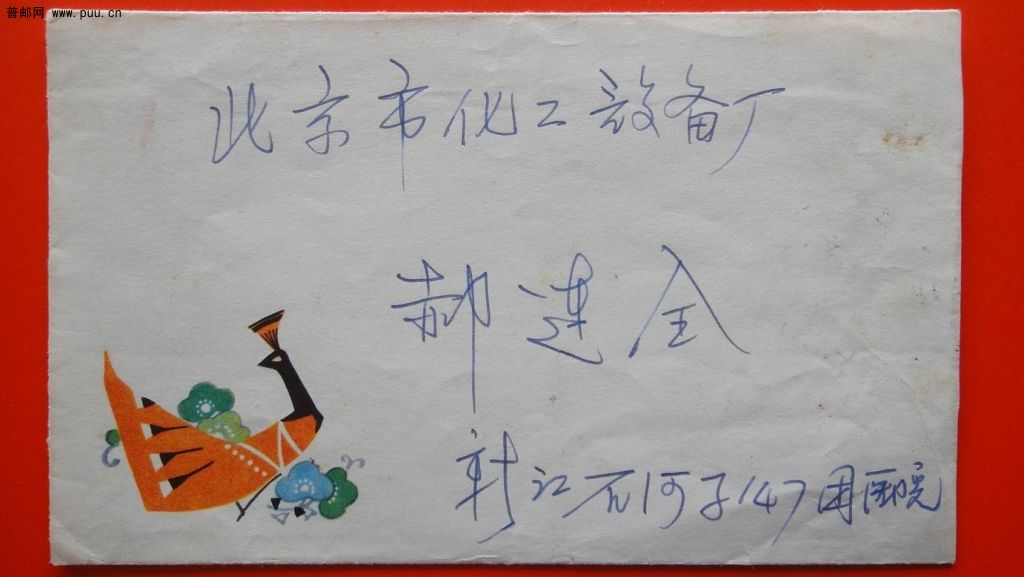 普邮网 www.puu.cn
北京市化工設备厂
郝連全
新江石河子147团医院